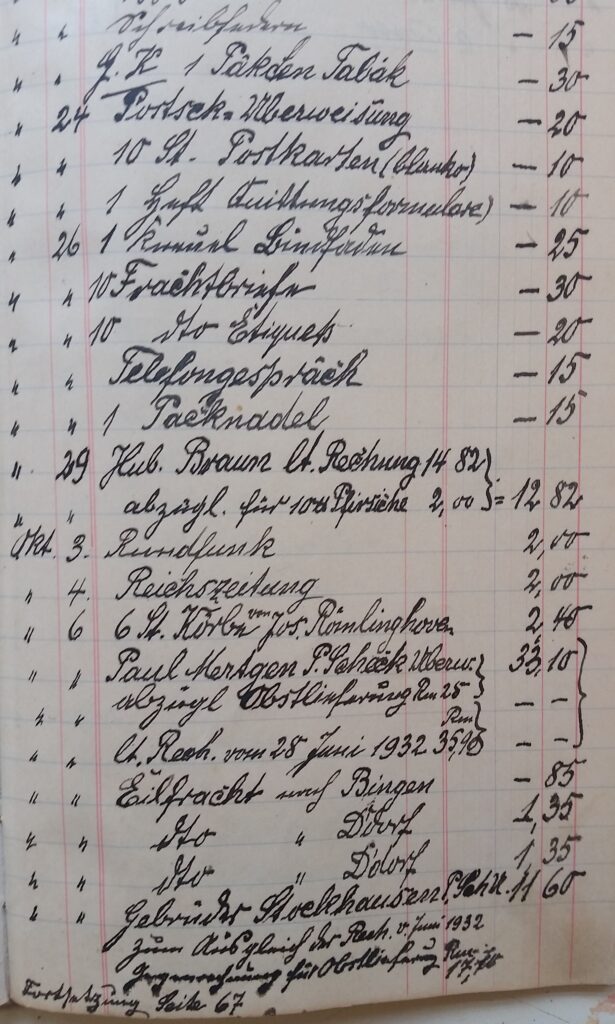 " " Schreibfedern — 15
" " J. K 1 Päkchen Tabak — 30
" 24 Postsck= Überweisung — 20
" " 10 St. Postkarten (blanko) — 10
" " 1 Heft Quittungsformulare) — 10
" 26 1 Kneuel Bindfaden — 25
" " 10 Frachtbriefe — 30
" " 10 dto Etiquets — 20
" " Telefongespräch — 15
" " 1 Packnadel — 15
" 29 Hub. Braun lt. Rechung 14 82
" " abzügl. für 10 Pfirsiche 2,00 = 12 82
Okt. 3. Rundfunk 2,00
" 4. Reichszeitung 2,00
" 6 6 St. Körbe von Jos. Römlinghoven 2,40
" " Paul Mertgen P. Scheck Überw. 33,10
" " abzügl Obstlieferung Rm 25 — —
" " lt. Rech. vom 28 Juni 1932 Rm 35,90 — —
" " Eilfracht nach Bingen — 85
" " dto " Ddorf 1,35
" " dto " Ddorf 1,35
" " Gebrüder Stockhausen P. Sch. 11 60
zum Ausgleich der Rech. v. Juni 1932
Gegenrechnung für Obstlieferung Rm 17,70
Fortsetzung Seite 67